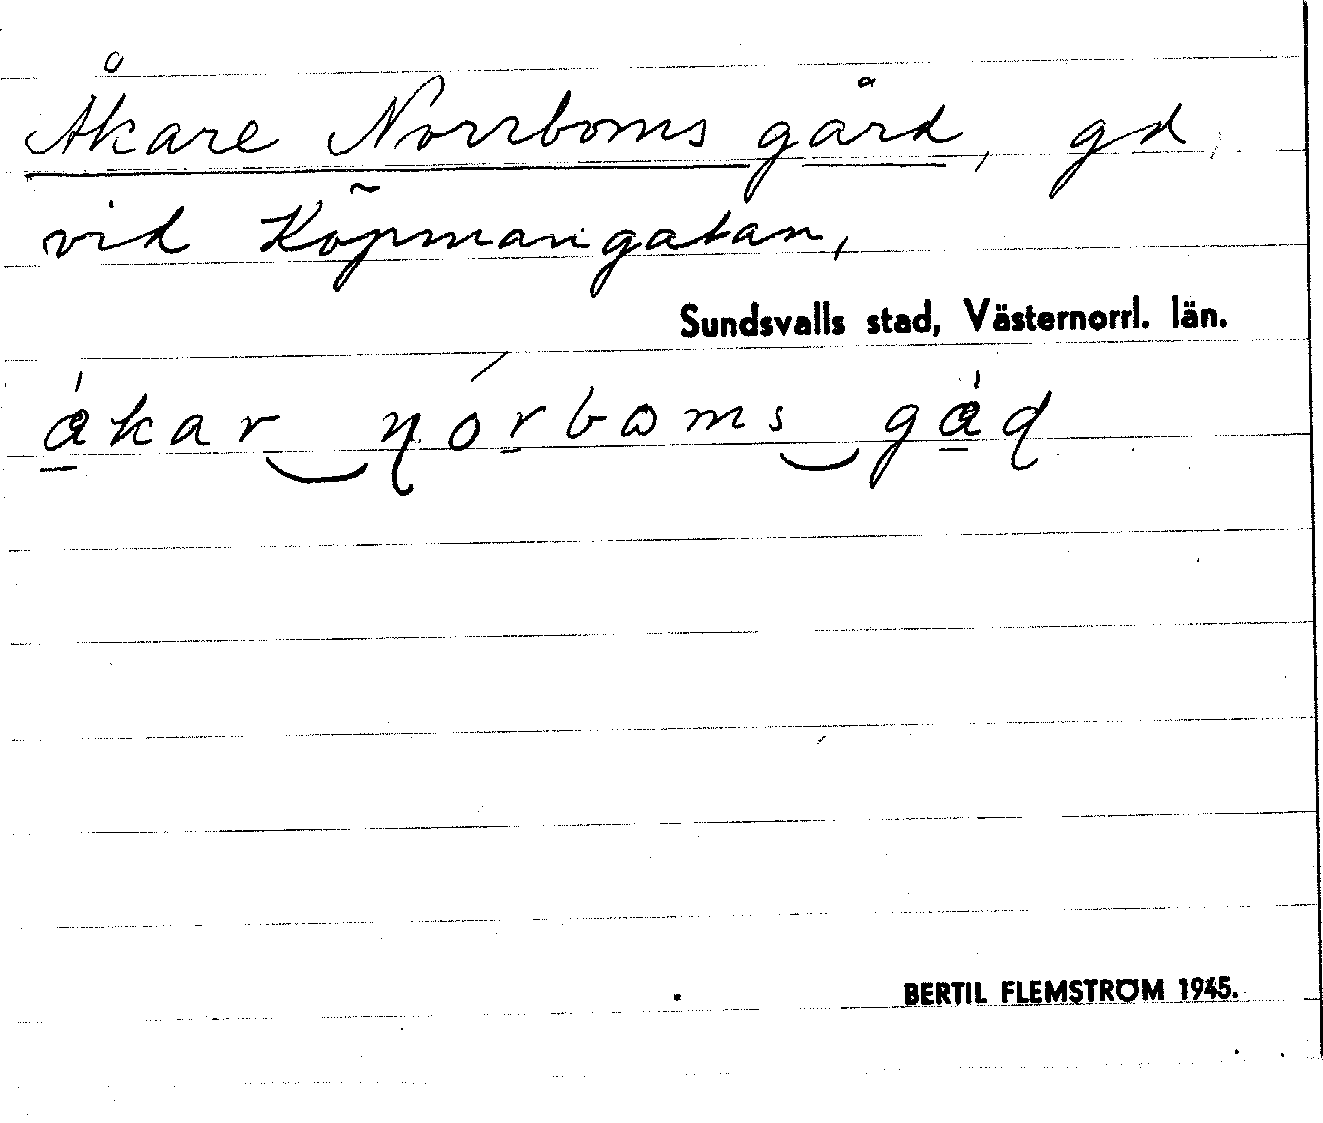 Åkare Norrboms gård, gd,
vid Köpmangatan,
Sundsvalls stad, Västernorrl. län.
ǻ̱kar‿ɳóṟboms‿gǻ̱ɖ
BERTIL FLEMSTRÖM 1945.